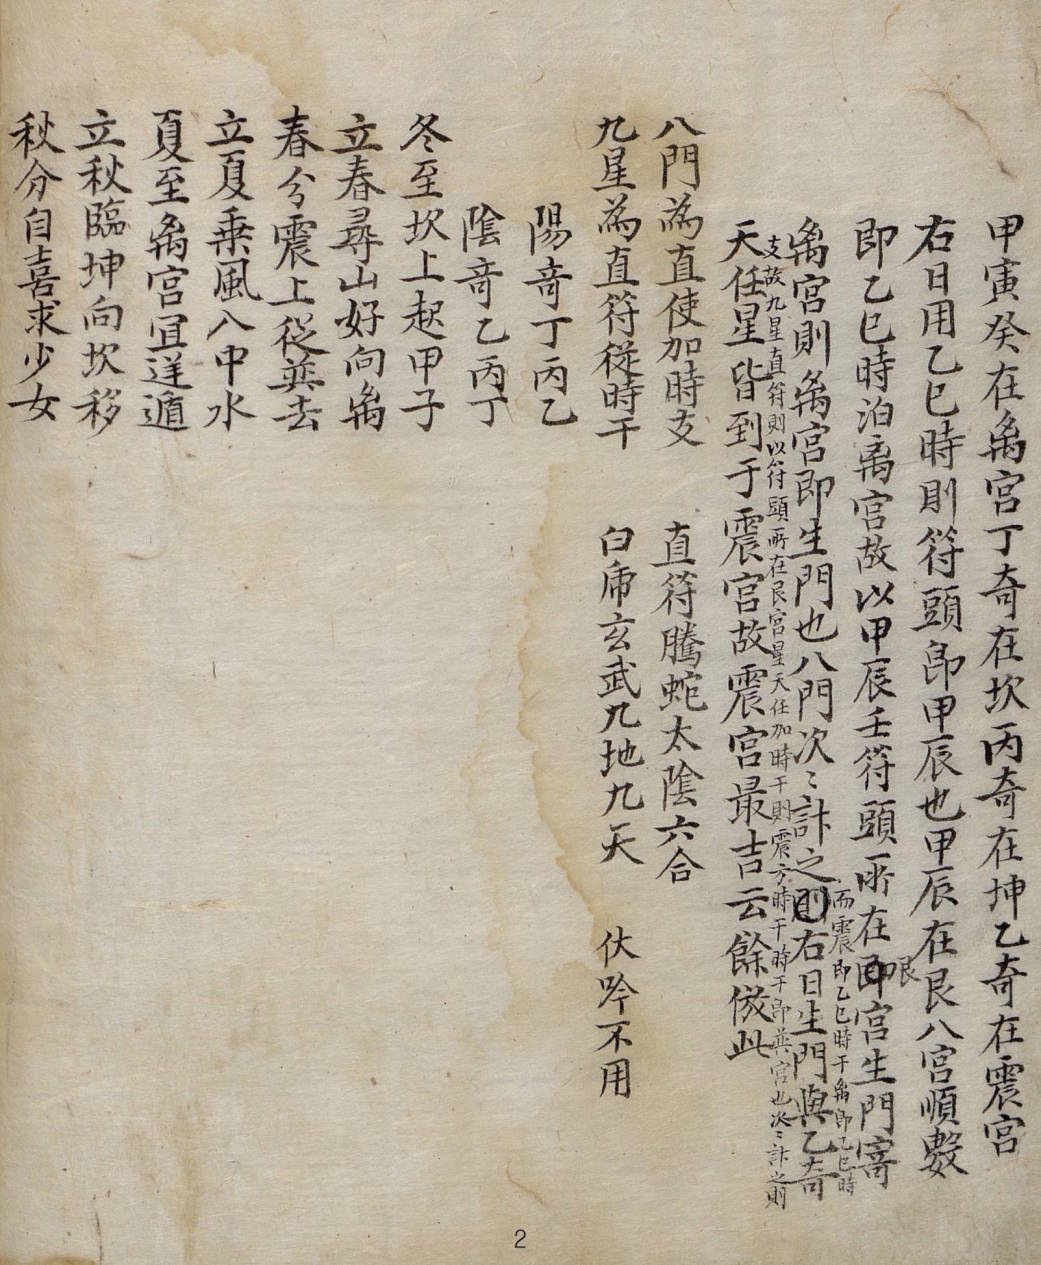 甲寅癸在禼宮丁奇在坎丙奇在坤乙奇在震宮
右日用乙巳時則符頭即甲辰也甲辰在艮八宮順數
即乙巳時泊禼宮故以甲辰壬符頭所在艮宮生門寄
而震即乙巳時干禼即乙巳時
禼宮則禼宮即生門也八門次〻計之則右日生門與乙奇
支故九星直符則以符頭所在艮宮星天任加時干則震方時干時干即巽宮也次〻計之則
天任星皆到于震宮故震宮最吉云餘倣此
八門為直使加時支 直符騰蛇太陰六合
九星為直符從時干 白虎玄武九地九天 伏吟不用
陽奇丁丙乙
陰奇乙丙丁
冬至坎上起甲子
立春尋山好向禼
春分震上從巽去
立夏乗風八中水
夏至禼宮冝逆遁
立秋臨坤向坎移
秋分自喜求少女
2